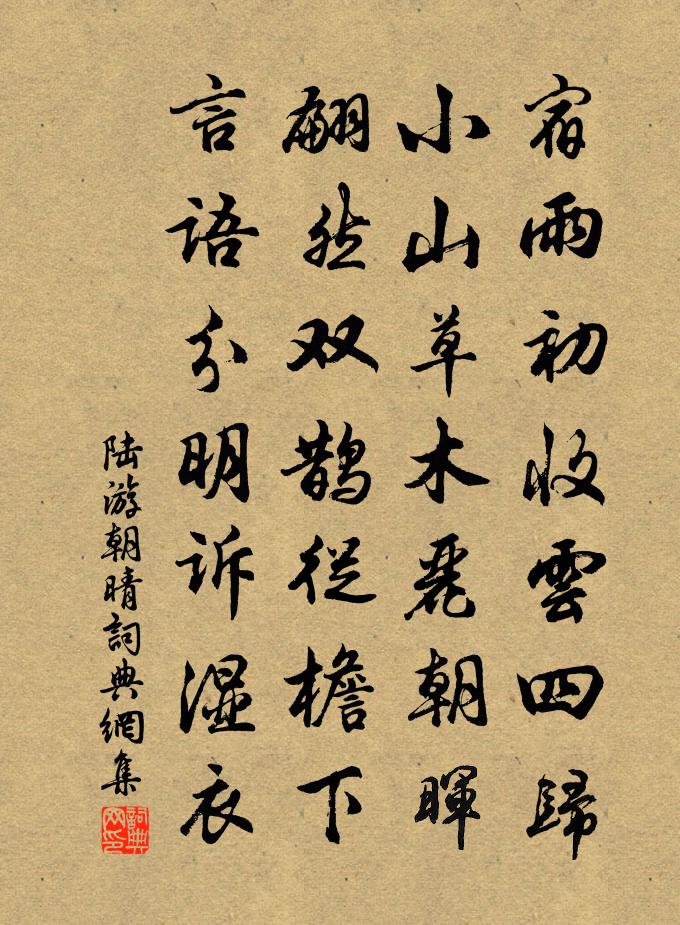 宿雨初收雲四歸
小山草木麗朝暉
翩然双鵲從檐下
言語分明訴湿衣
陆游朝晴詞典網集
詞典網印